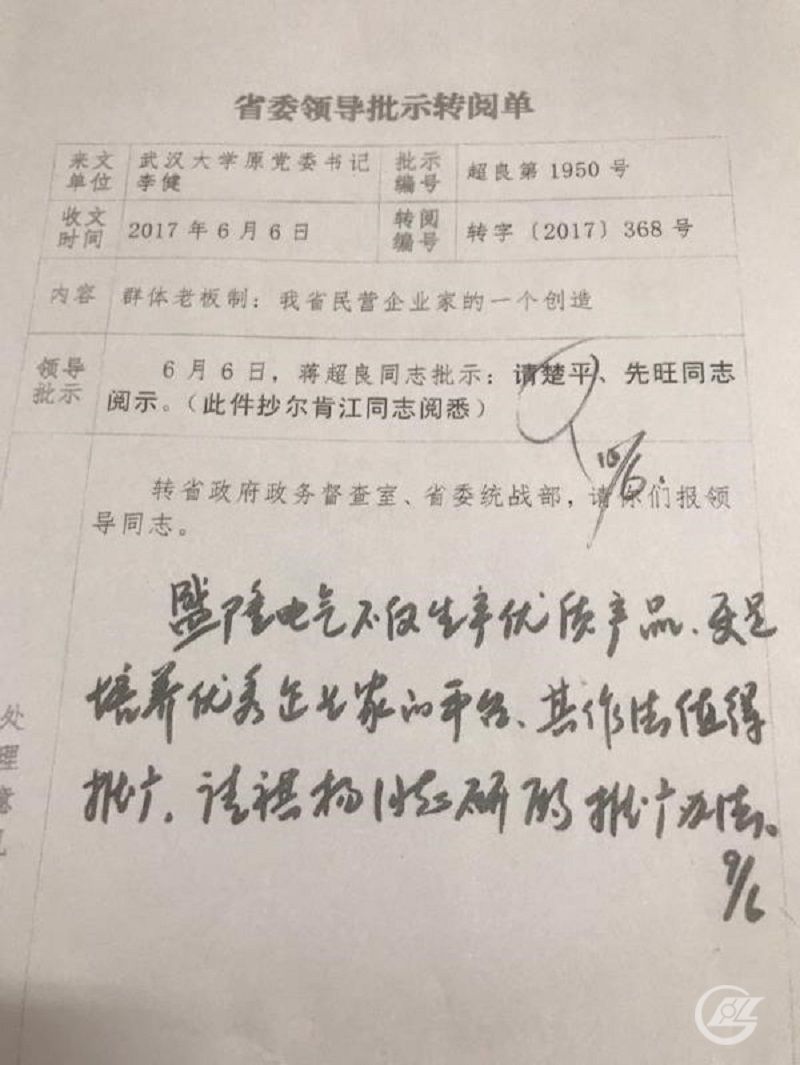 省委领导批示转阅单
来文单位 武汉大学原党委书记李健 批示编号 超良第 1950 号
收文时间 2017 年 6 月 6 日 转阅编号 转字〔2017〕368 号
内容 群体老板制：我省民营企业家的一个创造
领导批示 6 月 6 日，蒋超良同志批示：请楚平、先旺同志
阅示。（此件抄尔肯江同志阅悉）
10/6.
转省政府政务督查室、省委统战部，请你们报领
导同志。
盛隆电气不仅生产优质产品、更是
培养优秀企业家的平台、其作法值得
推广。请祺扬 研 推广办法。
9/6
处理意见